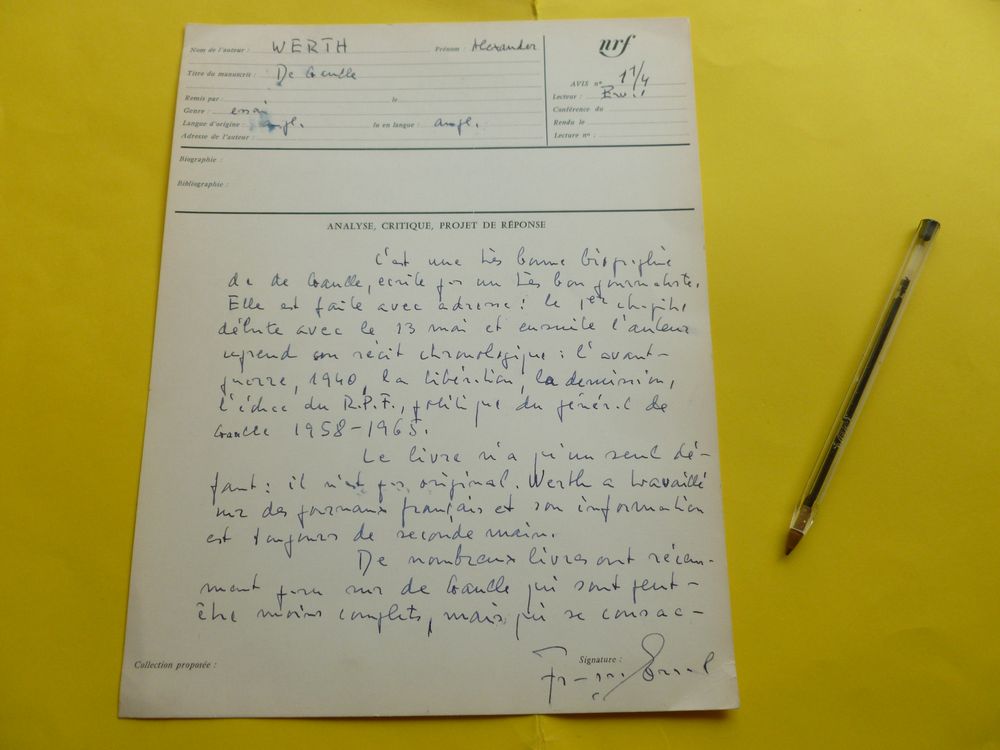 Nom de l'auteur : WERTH Prénom : Alexander
nrf
Titre du manuscrit : De Gaulle
AVIS nº 17/4
Remis par : le
Lecteur :
Genre : essai
Conférence du
Langue d'origine : angl. lu en langue : angl.
Rendu le
Adresse de l'auteur :
Lecture nº :
Biographie :
Bibliographie :
ANALYSE, CRITIQUE, PROJET DE RÉPONSE
C'est une très bonne biographie
de de Gaulle, écrite par un très bon journaliste.
Elle est faite avec adresse : le 1er chapitre
débute avec le 13 mai et ensuite l'auteur
reprend son récit chronologique : l'avant-
guerre, 1940, la libération, la démission,
l'échec du R.P.F., politique du général de
Gaulle 1958-1965.
Le livre n'a qu'un seul dé-
faut : il n'est pas original. Werth a travaillé
sur des journaux français et son information
est toujours de seconde main.
De nombreux livres ont récem-
ment paru sur de Gaulle qui sont peut-
être moins complets, mais qui se consac-
Collection proposée :
Signature :